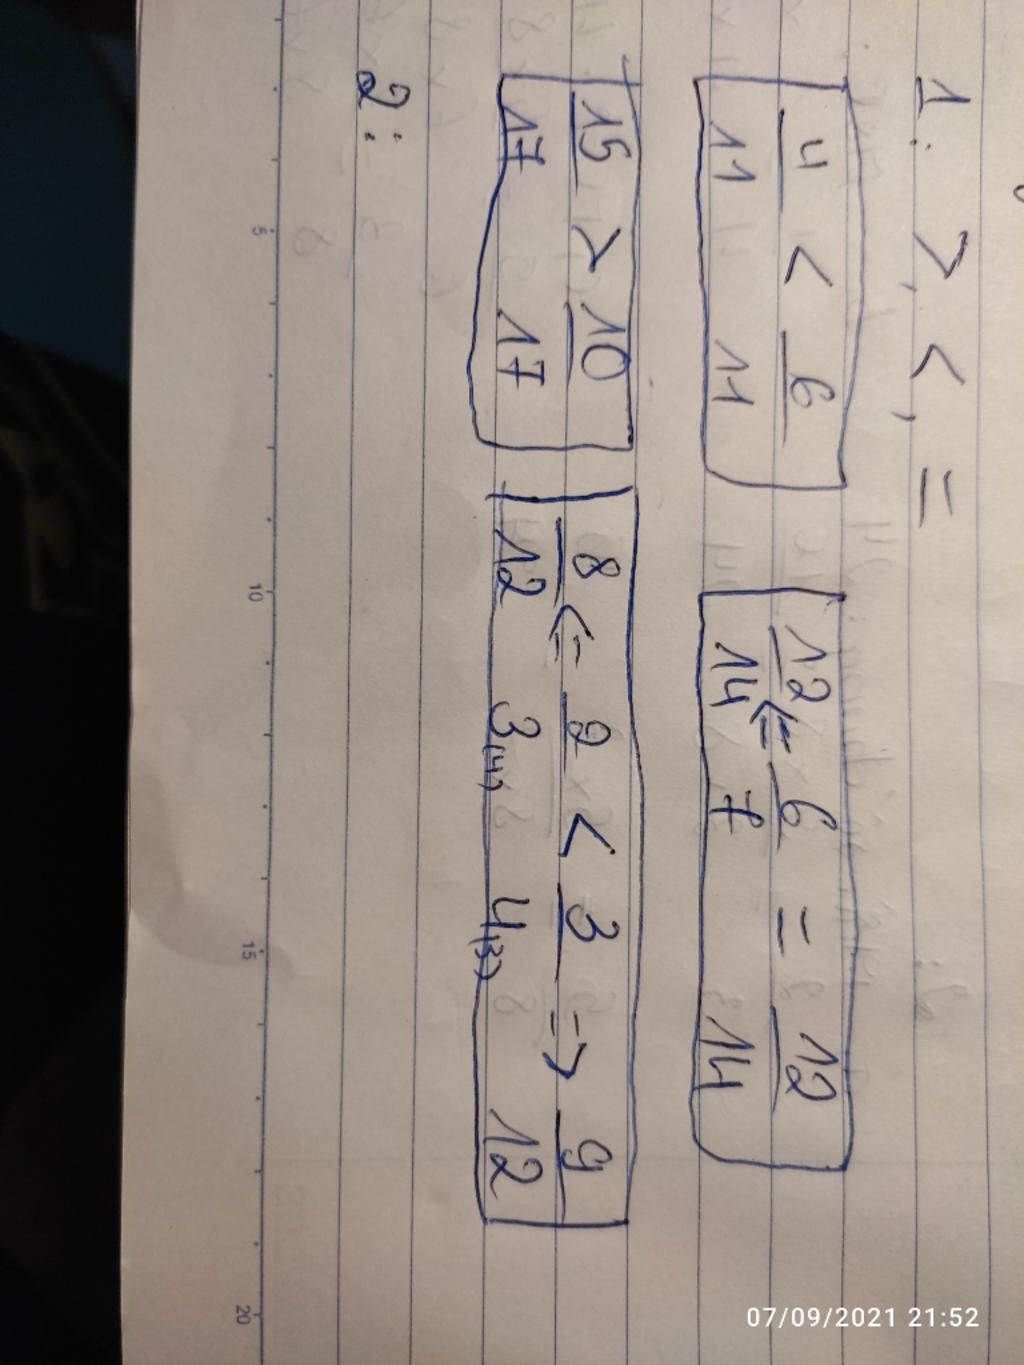 1: >, <, =
4/11 < 6/11
12/14 <= 6/7 = 12/14
15/17 > 10/17
8/12 <= 2/3(4) < 3/4(3) => 9/12
2:
5 10 15 20
07/09/2021 21:52